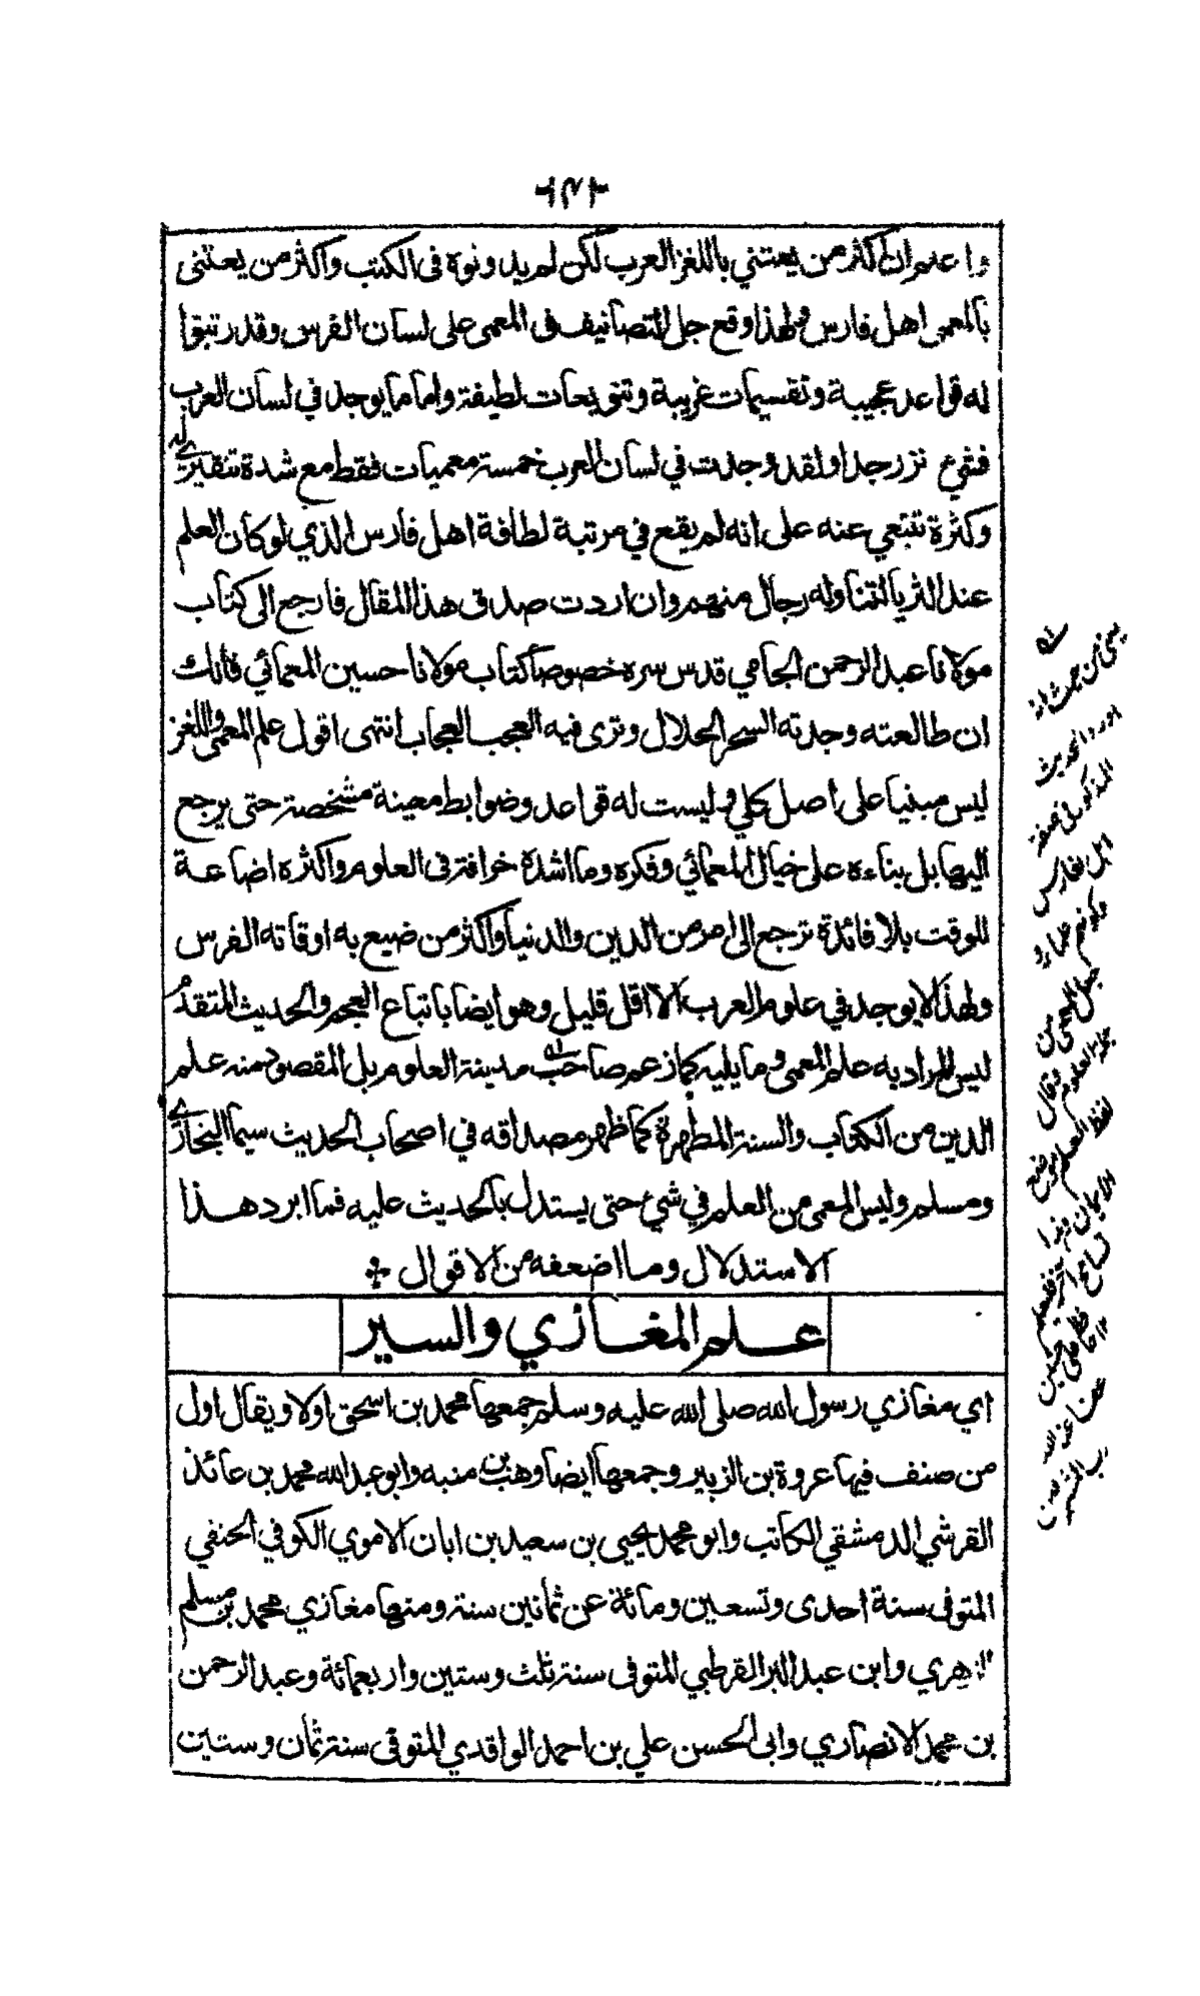 ٦٤٣
واعلم ان اكثر من يعتني باللغز العرب لكن لم يدونوه فى الكتب واكثر من يعتنى
بالمعمى اهل فارس ولهذا وقع جل التصانيف فى المعمى على لسان الفرس وقد رتبوا
له قواعد عجيبة وتقسيمات غريبة وتنويعات لطيفة واما ما يوجد في لسان العرب
فشيء نزر جدا ولقد وجدت في لسان العرب خمسة معميات فقط مع شدة تنقيري له
وكثرة تتبعي عنه على انه لم يقع في مرتبة لطافة اهل فارس الذي لو كان العلم
عند الثريا لتناوله رجال منهم وان اردت صدق هذا المقال فارجع الى كتاب
مولانا عبد الرحمن الجامي قدس سره خصوصا كتاب مولانا حسين المعمائي فانك
ان طالعته وجدته السحر الحلال وترى فيه العجب العجاب انتهى اقول علم المعمى واللغز
ليس مبنيا على اصل كلي وليست له قواعد وضوابط معينة مشخصة حتى يرجع
اليها بل بناءه على خيال المعمائي وفكره وما اشده خرافة فى العلوم واكثره اضاعة
للوقت بلا فائدة ترجع الى امر من الدين والدنيا واكثر من ضيع به اوقاته الفرس
ولهذا لا يوجد في علوم العرب الا اقل قليل وهو ايضا باتباع العجم والحديث المتقدم
ليس المراد به علم المعمى وما يليه كما زعم صاحب مدينة العلوم بل المقصود منه علم
الدين من الكتاب والسنة المطهرة كما ظهر مصداقه في اصحاب الحديث سيما البخاري
ومسلم وليس المعمى من العلم في شيء حتى يستدل بالحديث عليه فما ابرد هذا
الاستدلال وما اضعفه من الاقوال
علم المغازي والسير
اي مغازي رسول الله صلى الله عليه وسلم جمعها محمد بن اسحق اولا ويقال اول
من صنف فيها عروة بن الزبير وجمعها ايضا وهب بن منبه وابو عبد الله محمد بن عائذ
القرشي الدمشقي الكاتب وابو محمد يحيى بن سعيد بن ابان الاموي الكوفي الحنفي
المتوفى سنة احدى وتسعين ومائة عن ثمانين سنة ومنها مغازي محمد بن مسلم
الزهري وابن عبد البر القرطبي المتوفى سنة ثلث وستين واربعمائة وعبد الرحمن
بن محمد الانصاري وابى الحسن علي بن احمد الواقدي المتوفى سنة ثمان وستين
يعني من حيث انه
اورد الحديث
المذكور في صفة
اهل فارس